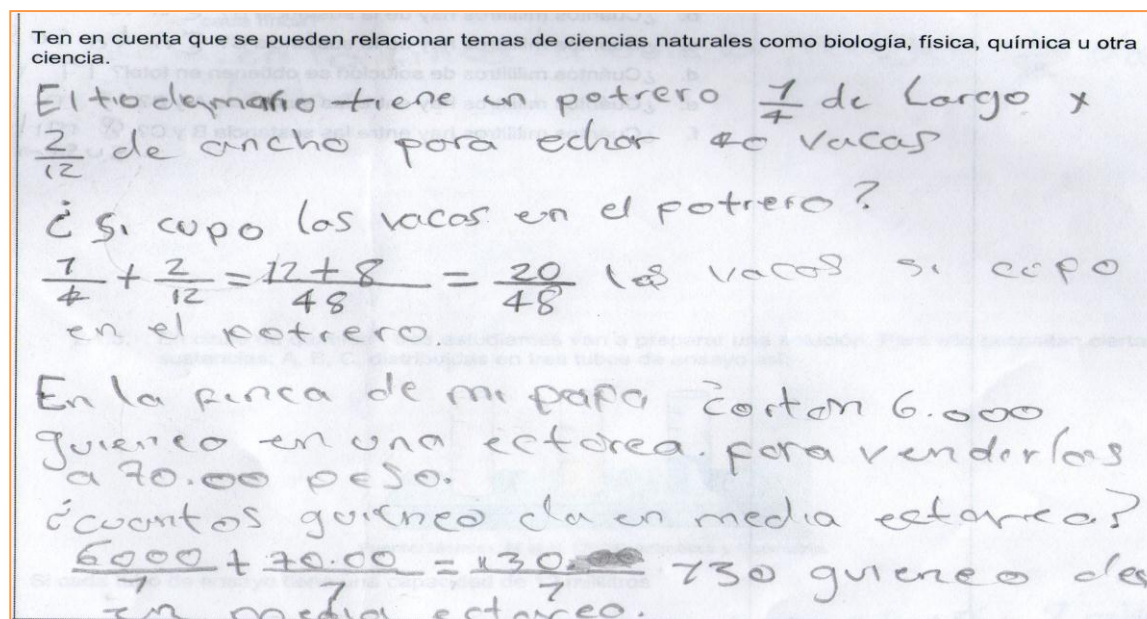 Ten en cuenta que se pueden relacionar temas de ciencias naturales como biología, física, química u otra
ciencia.
El tio de mario tiene un potrero 1/4 de largo x
2/12 de ancho para echar 40 vacas
¿Si cupo las vacas en el potrero?
1/4 + 2/12 = 12 + 8/48 = 20/48 las vacas si cupo
en el potrero
En la finca de mi papa cortan 6.000
guieneo en una ectarea. para venderlas
a 70.00 peso.
¿cuantos guieneo da en media ectareas?
6000 + 70.00 = 730 guieneo da
en media ectareo.